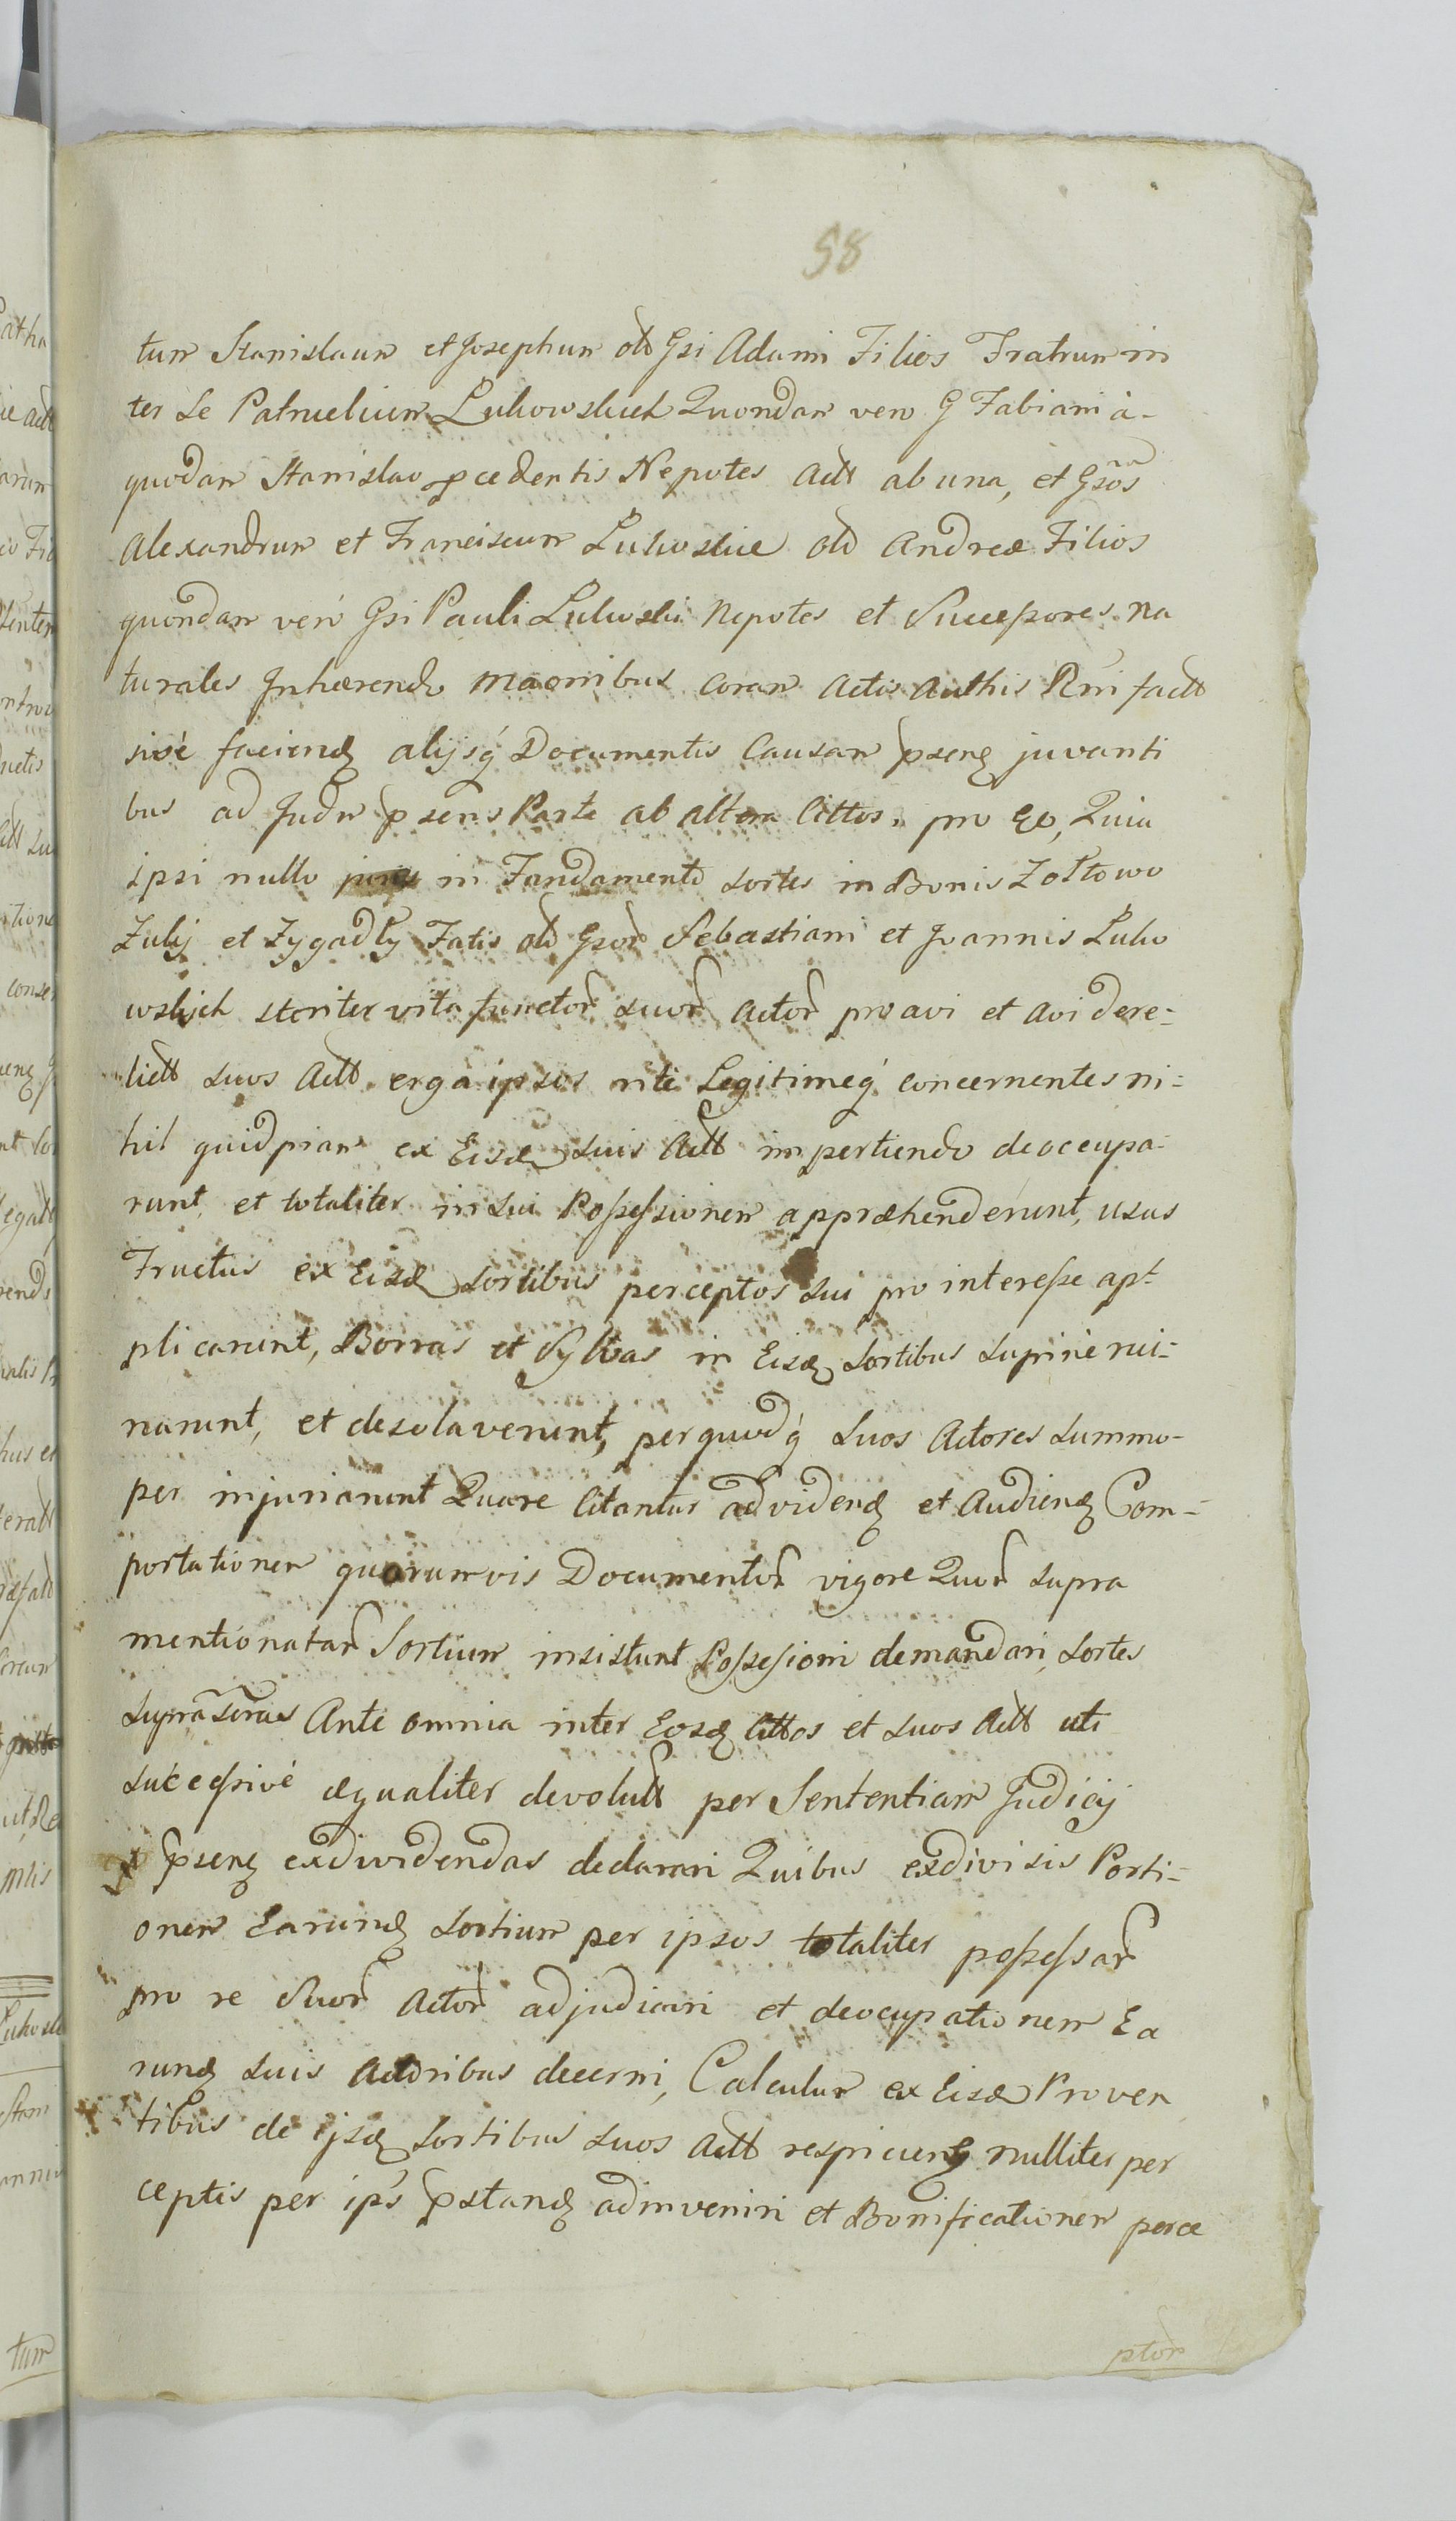 58
tum Stanislaum et Josephum olỡ Gsi Adami Filios Fratrum in
ter se Patruelium Lukowskich Quondam vero G Fabiani à-
quodam Stanislao pcedentis Nepotes Actt ab una, et Gsos
Alexandrum et Franciscum Lukoskie olỡ Andreæ Filios
quondam verò Gsi Pauli Lukoski Nepotes et Successores na
turales Inhærendo maonibus coram Actis Authis Rni factt
sivè faciend alijsq́ Documentis Causam psenṫ juvanti
bus ad Judm psens Parte ab altera Cittos, pro Eo, Quia
ipsi nullo juris in Fundamento Sortes in Bonis Zołtowo
Zuly et Zygadły Fatis olỡ Gsor Sebastiani et Joannis Luko
wskich steriter vita functor suor Actor proavi et avi dere-
lictt suos Actt erga ipsos ritè Legitimeq́ concernentes ni-
hil quidpiam ex Eisd suis Actt impertiendo deoccupa-
runt et totaliter in sui Possessionem appræhenderunt, usus
Fructus ex Eisd sortibus perceptos sui pro interesse ap-
plicarunt, Borras et Sylvas in Eisd Sortibus supinè rui-
narunt, et desolaverunt, perquodq́ suos Actores summo-
per injuriarunt Quare Citantur ad videnḋ et Audienḋ Com-
portationem quorumvis Documentor vigore Quor supra
mentionatar Sortium insistunt Possesioni demandari, sortes
suprascras Ante omnia inter Eosd Cittos et suos Actt uti
successivè æqualiter devolutt per Sententiam Judicij
psenṫ exdividendas declarari Quibus exdivisis Porti-
onem Earund Sortium per ipsos totaliter possessar
pro re Suor Actor adjudicari et deocupationem Ea
rund suis Actoribus decerni, Calculum ex Eisd Proven
tibus de ijsd Sortibus suos Actt respicienṫ nulliter per
ceptis per ips pstand adinveniri et Bonificationem perce
ptor